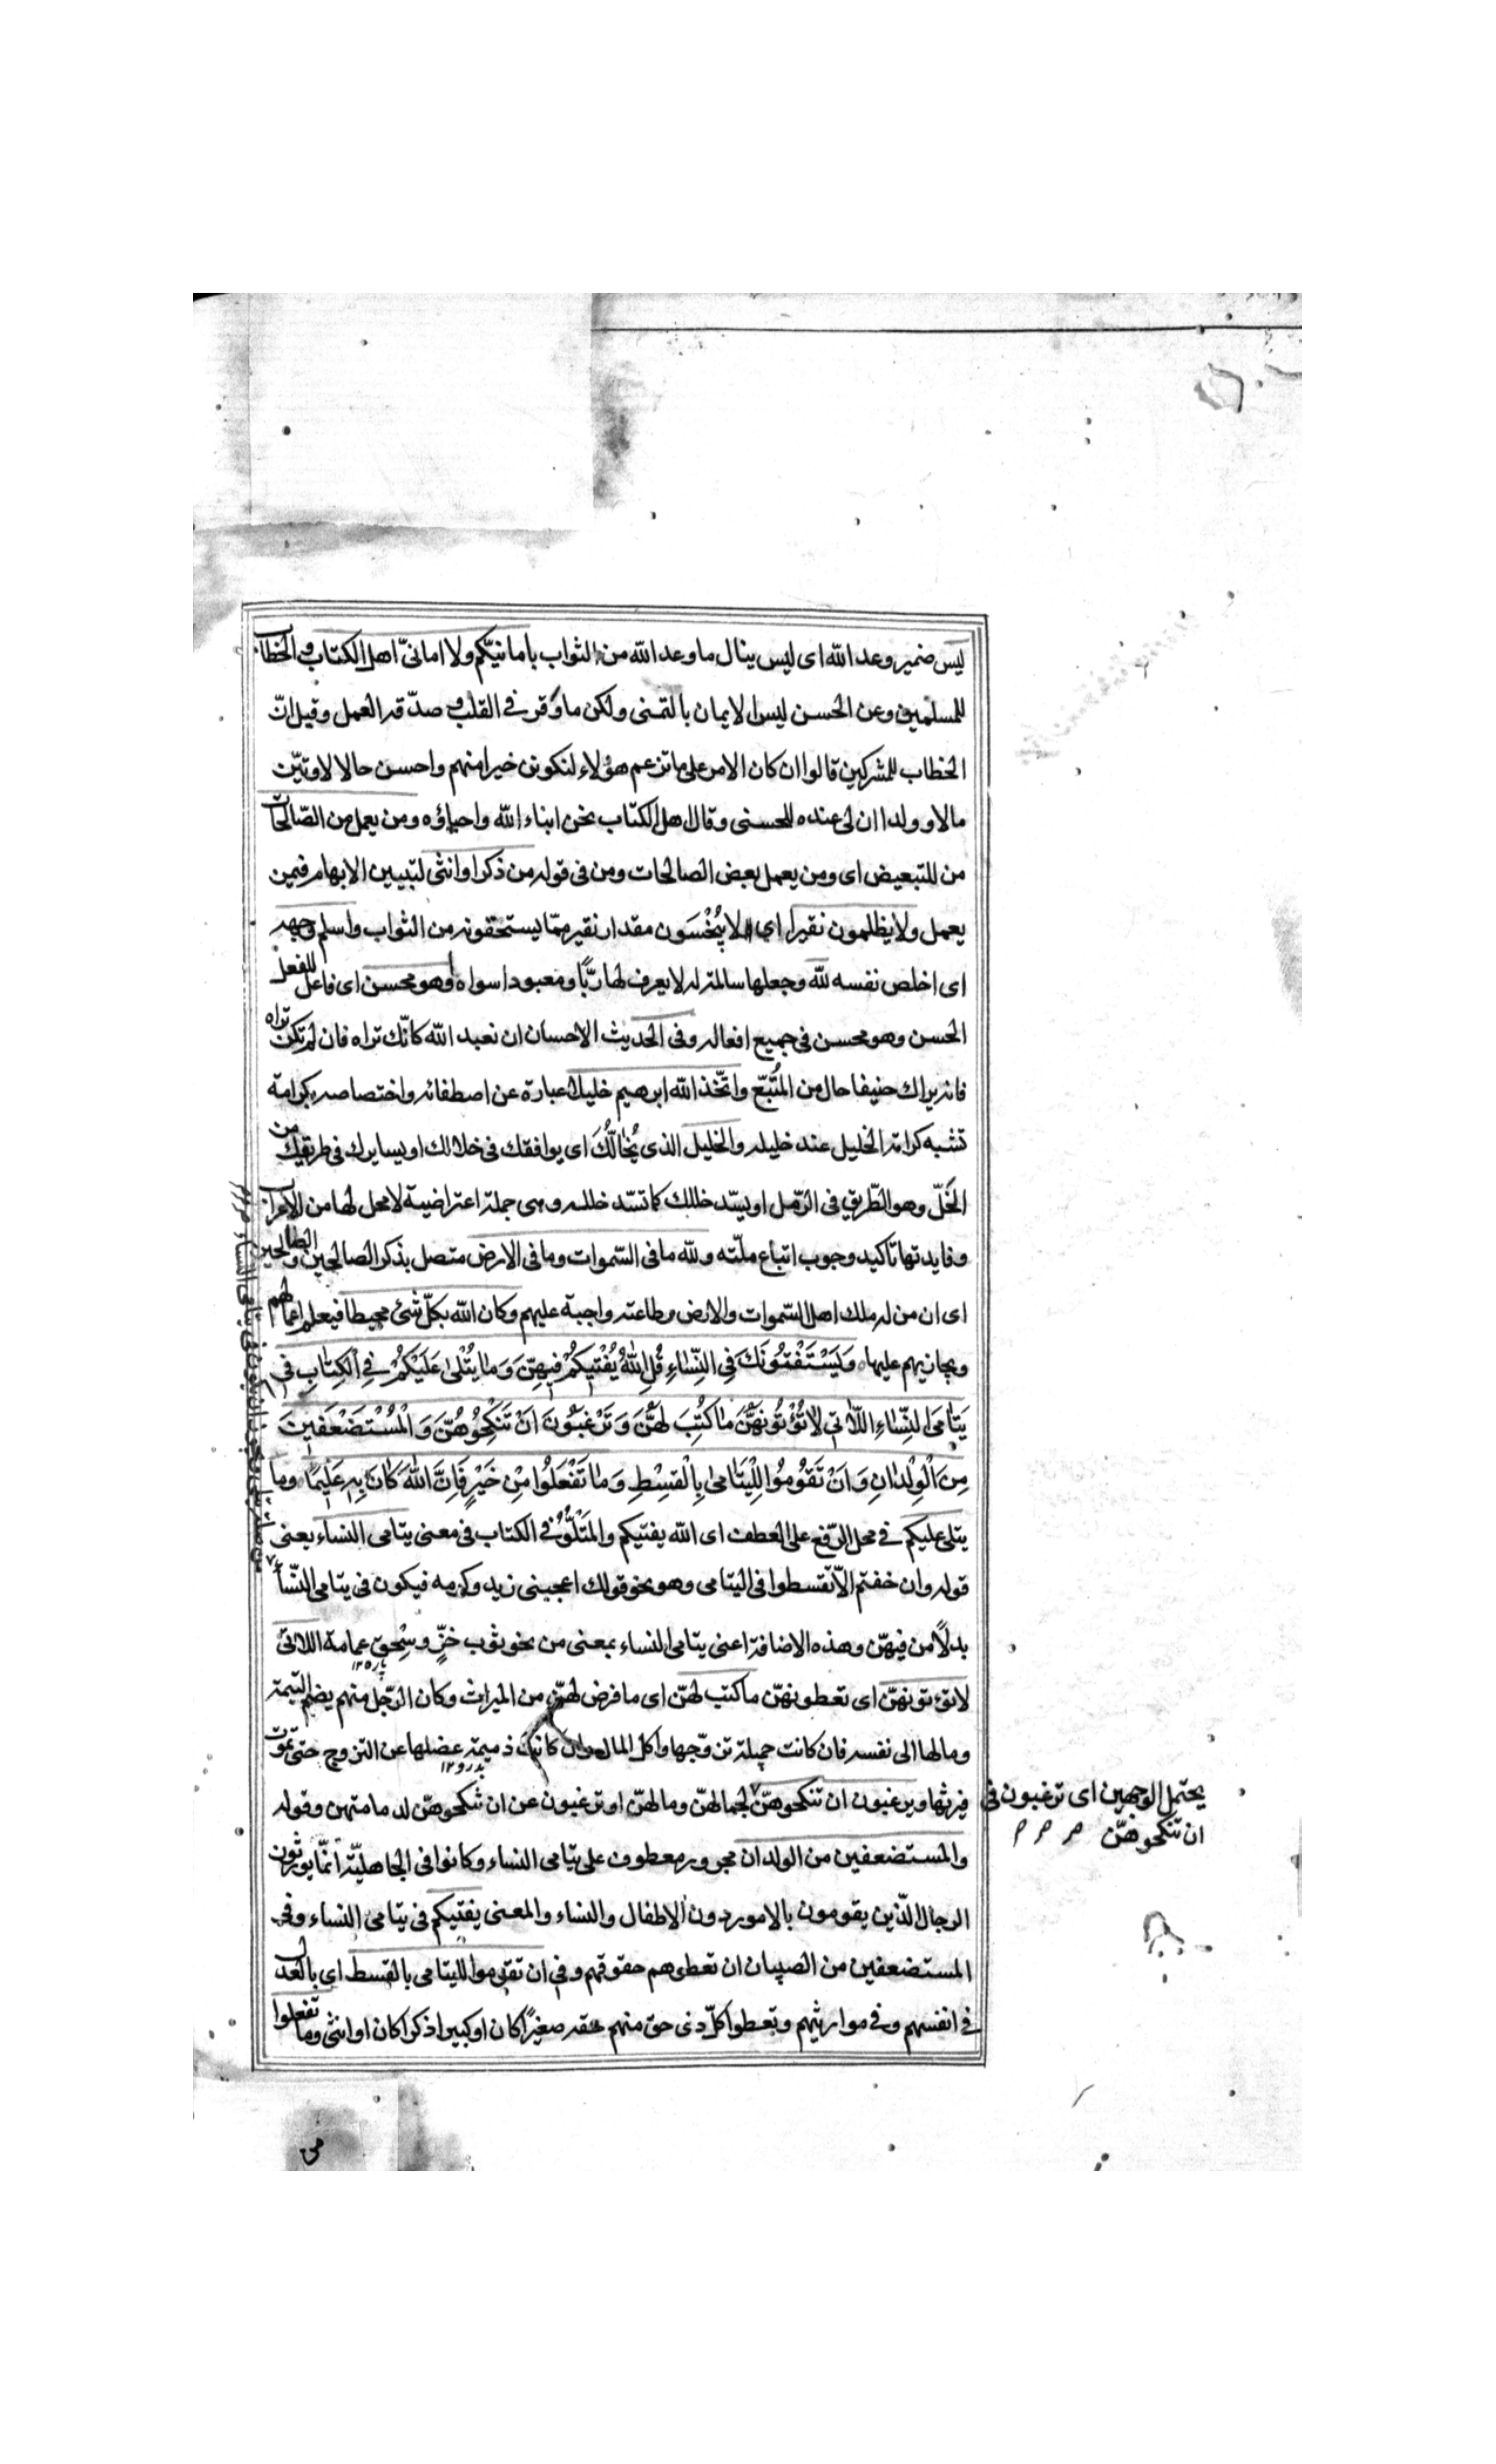 ليس ضمير وعد الله اى ليس ينال ما وعد الله من الثواب بامانيّكم ولا امانىّ اهل الكتاب والخطاب
للمسلمين وعن الحسن ليس الايمان بالتمنى ولكن ما وَقر في القلب و صدّقه العمل وقيل انّ
الخطاب للمشركين قالوا ان كان الامر على ما تزعم هؤلاء لنكوننّ خيرا منهم واحسن حالا لاوتيّن
مالا و ولدا ان لى عنده للحسنى وقال اهل الكتاب نحن ابناء الله واحباؤه ومن يعمل من الصّالحات
من للتبعيض اى ومن يعمل بعض الصالحات ومن فى قوله من ذكر او انثى لتبيين الابهام فى من
يعمل ولا يظلمون نقيرا اي لا يُبْخَسَون مقدار نقير ممّا يستحقونه من الثواب واسلم وجهه
اى اخلص نفسه لله وجعلها سالمة له لا يعرف لها ربًّا ومعبودا سواه وهو محسن اى فاعل للفعل
الحسن وهو محسن فى جميع افعاله وفى الحديث الاحسان ان تعبد الله كانّك تراه فان لم تكن تراه
فانه يراك حنيفا حال من المُتّبَع واتّخذ الله ابرهيم خليلا عبارة عن اصطفائه واختصاصه بكرامة
تشبه كرامة الخليل عند خليله والخليل الذى يُخالُّكَ اى يوافقك فى خلالك او يسايرك فى طريقك من
الخَلّ وهو الطّريق فى الرّمل او يسّد خللك كما تسّد خلله وهى جملة اعتراضية لا محل لها من الاعراب
وفايدتها تأكيد وجوب اتباع ملّته ولله ما فى السّموات وما فى الارض متصل بذكر الصالحين والطالحين
اى ان من له ملك اهل السّموات والارض وطاعته واجبة عليهم وكان الله بكلّ شئ محيطا فيعلم اعمالهم
ويجازيهم عليها وَيَسْتَفْتُونَكَ فِى النِّسَاءِ قُلِ اللهُ يُفْتِيكُمْ فِيهِنَّ وَمَا يُتْلىٰ عَلَيْكُمْ فِي الْكِتَابِ فى
يَتَامَى النِّسَاءِ اللَّاتِي لَا تُؤْتُونَهُنَّ مَا كُتِبَ لَهُنَّ وَ تَرْغَبُونَ اَنْ تَنْكِحُوهُنَّ وَ الْمُسْتَضْعَفِينَ
مِنَ الْوِلْدَانِ وَ اَنْ تَقُومُوا لِلْيَتَامىٰ بِالْقِسْطِ وَ مَا تَفْعَلُوا مِنْ خَيْرٍ فَاِنَّ اللهَ كَانَ بِهِ عَلِيمًا وما
يتلى عليكم في محل الرّفع على العطف اى الله يفتيكم والمَتْلُوُّ في الكتاب فى معنى يتامى النساء يعنى
قوله وان خفتم الّا تقسطوا فى اليتامى وهو نحو قولك اعجبنى زيد وكرمه فيكون فى يتامى النّساء
بدلًا من فيهنّ وهذه الاضافة اعنى يتامى النساء بمعنى من نحو ثوب خزٍّ و سحق عمامة اللاتى
لا تؤتونهنّ اى تعطونهنّ ما كتب لهنّ اى ما فرض لهنّ من الميراث وكان الرّجل منهم يضم اليتيمة
ومالها الى نفسه فان كانت جميلة تزوّجها واكل المال وان كانت ذميمة عضلها عن التزوج حتى تموت
فيرثها وترغبون ان تنكحوهنّ لجمالهنّ ومالهنّ او ترغبون عن ان تنكحوهنّ لدمامتهن وقوله
والمستضعفين من الولدان مجرور معطوف على يتامى النساء وكانوا فى الجاهليّة انّما يورثون
الرجال الّذين يقومون بالامور دون الاطفال والنساء والمعنى يفتيكم فى يتامى النساء وفى
المستضعفين من الصبيان ان تعطوهم حقوقهم وفى ان تقوموا لليتامى بالقسط اى بالعدل
في انفسهم وفى مواريثهم وتعطوا كلّ ذى حق منهم حقه صغيرًا كان او كبيرا ذكرا كان او انثى وما تفعلوا
يحتمل الوجهين اى ترغبون فى
ان تنكحوهنّ